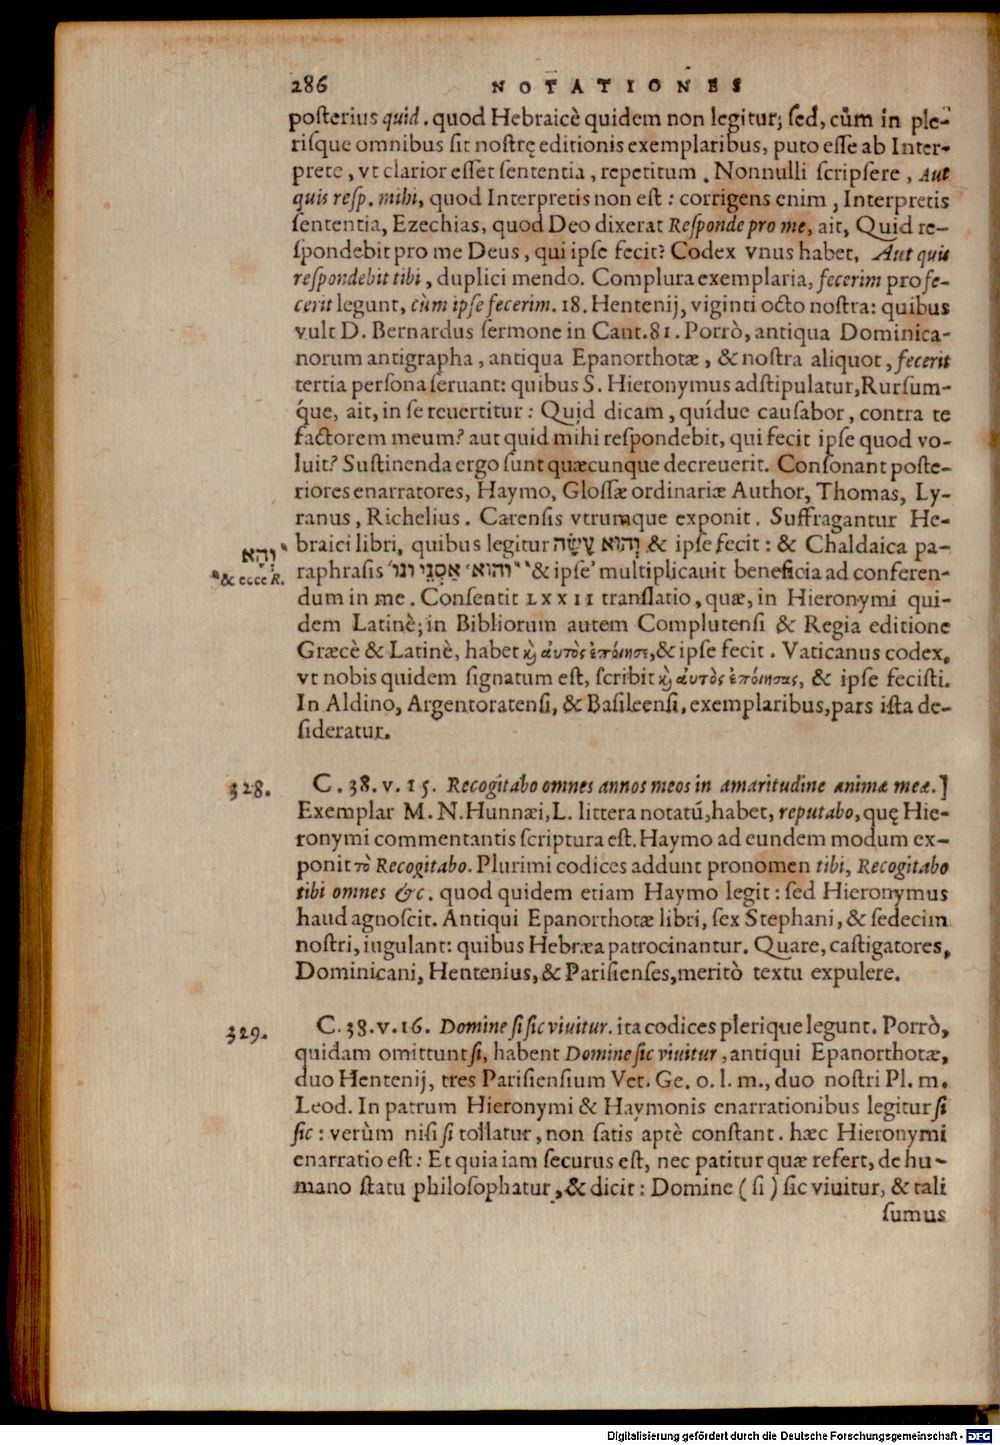 286 NOTATIONES
posterius quid. quod Hebraicè quidem non legitur; sed, cùm in ple-
risque omnibus sit nostrę editionis exemplaribus, puto esse ab Inter-
prete, vt clarior esset sententia, repetitum. Nonnulli scripsere, Aut
quis resp. mihi, quod Interpretis non est: corrigens enim, Interpretis
sententia, Ezechias, quod Deo dixerat Responde pro me, ait, Quid re-
spondebit pro me Deus, qui ipse fecit? Codex vnus habet, Aut quis
respondebit tibi, duplici mendo. Complura exemplaria, fecerim pro fe-
cerit legunt, cùm ipse fecerim. 18. Hentenij, viginti octo nostra: quibus
vult D. Bernardus sermone in Cant. 81. Porrò, antiqua Dominica-
norum antigrapha, antiqua Epanorthotæ, & nostra aliquot, fecerit
tertia persona seruant: quibus S. Hieronymus adstipulatur, Rursum-
q́ue, ait, in se reuertitur: Quid dicam, quídue causabor, contra te
factorem meum? aut quid mihi respondebit, qui fecit ipse quod vo-
luit? Sustinenda ergo sunt quæcunque decreuerit. Consonant poste-
riores enarratores, Haymo, Glossæ ordinariæ Author, Thomas, Ly-
ranus, Richelius. Carensis vtrumque exponit. Suffragantur He-
braici libri, quibus legitur וְהוּא עָשָׂה & ipse fecit: & Chaldaica pa-
"וְהָא
"& ecce R.
raphrasis "והוא" אַסְגֵּי וגו' "& ipse" multiplicauit beneficia ad conferen-
dum in me. Consentit LXXII translatio, quæ, in Hieronymi qui-
dem Latinè; in Bibliorum autem Complutensi & Regia editione
Græcè & Latinè, habet καὶ αὐτὸς ἐποίησε, & ipse fecit. Vaticanus codex,
vt nobis quidem signatum est, scribit καὶ αὐτὸς ἐποίησας, & ipse fecisti.
In Aldino, Argentoratensi, & Basileensi, exemplaribus, pars ista de-
sideratur.
328. C. 38. v. 15. Recogitabo omnes annos meos in amaritudine animæ meæ.]
Exemplar M. N. Hunnæi, L. littera notatũ, habet, reputabo, quę Hie-
ronymi commentantis scriptura est. Haymo ad eundem modum ex-
ponit τὸ Recogitabo. Plurimi codices addunt pronomen tibi, Recogitabo
tibi omnes &c. quod quidem etiam Haymo legit: sed Hieronymus
haud agnoscit. Antiqui Epanorthotæ libri, sex Stephani, & sedecim
nostri, iugulant: quibus Hebræa patrocinantur. Quare, castigatores,
Dominicani, Hentenius, & Parisienses, meritò textu expulere.
329. C. 38. v. 16. Domine si sic viuitur. ita codices plerique legunt. Porrò,
quidam omittunt si, habent Domine sic viuitur, antiqui Epanorthotæ,
duo Hentenij, tres Parisiensium Vet. Ge. o. l. m., duo nostri Pl. m.
Leod. In patrum Hieronymi & Haymonis enarrationibus legitur si
sic: verùm nisi si tollatur, non satis aptè constant. hæc Hieronymi
enarratio est: Et quia iam securus est, nec patitur quæ refert, de hu-
mano statu philosophatur, & dicit: Domine (si) sic viuitur, & tali
sumus
Digitalisierung gefördert durch die Deutsche Forschungsgemeinschaft - DFG